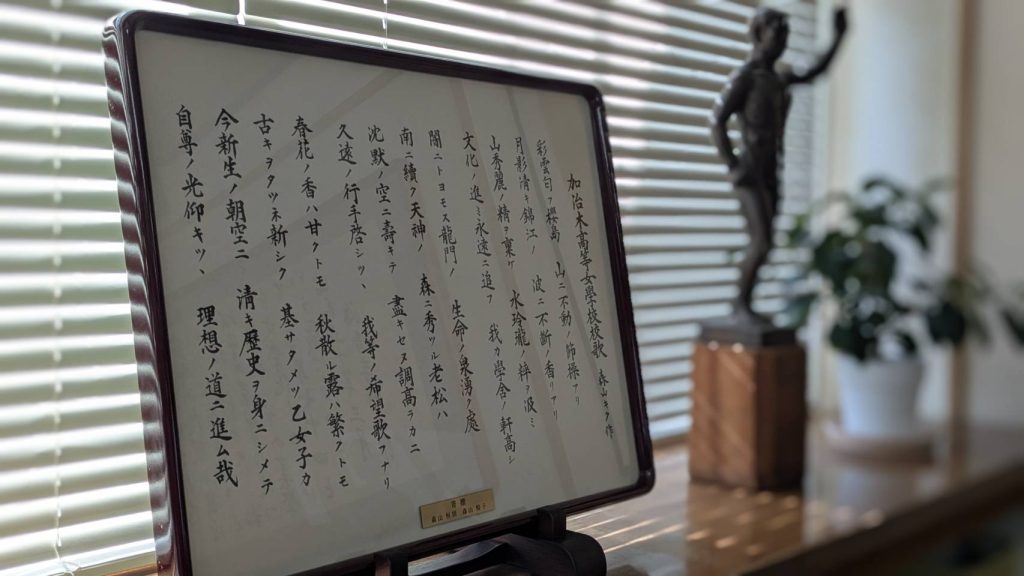 加治木高等女學校校歌 森山 作
彩雲匂フ櫻島 山ニ不動ノ節操アリ
月影清キ錦江ノ 波ニ不斷ノ香リアリ
山秀麗ノ精ヲ稟ケ 水玲瓏ノ粹ヲ汲ミ
文化ノ進ミ永遠ニ追フ 我カ學舎ノ軒高シ
ニトヨモス龍門ノ 生命ノ泉湧ク處
南ニ續ク天神ノ 森ニ秀ツル老松ハ
沈默ノ空ニ壽キテ 盡キセヌ調高ラカニ
久遠ノ行手啓シツヽ 我等ノ希望歌フナリ
春花ノ香ハ甘クトモ 秋散ル露ハ繁クトモ
古キヲタツネ新シク 基サタメツ乙女子カ
今新生ノ朝空ニ 清キ歴史ヲ身ニシメテ
自尊ノ光仰キツヽ 理想ノ道ニ進ム哉
寄贈